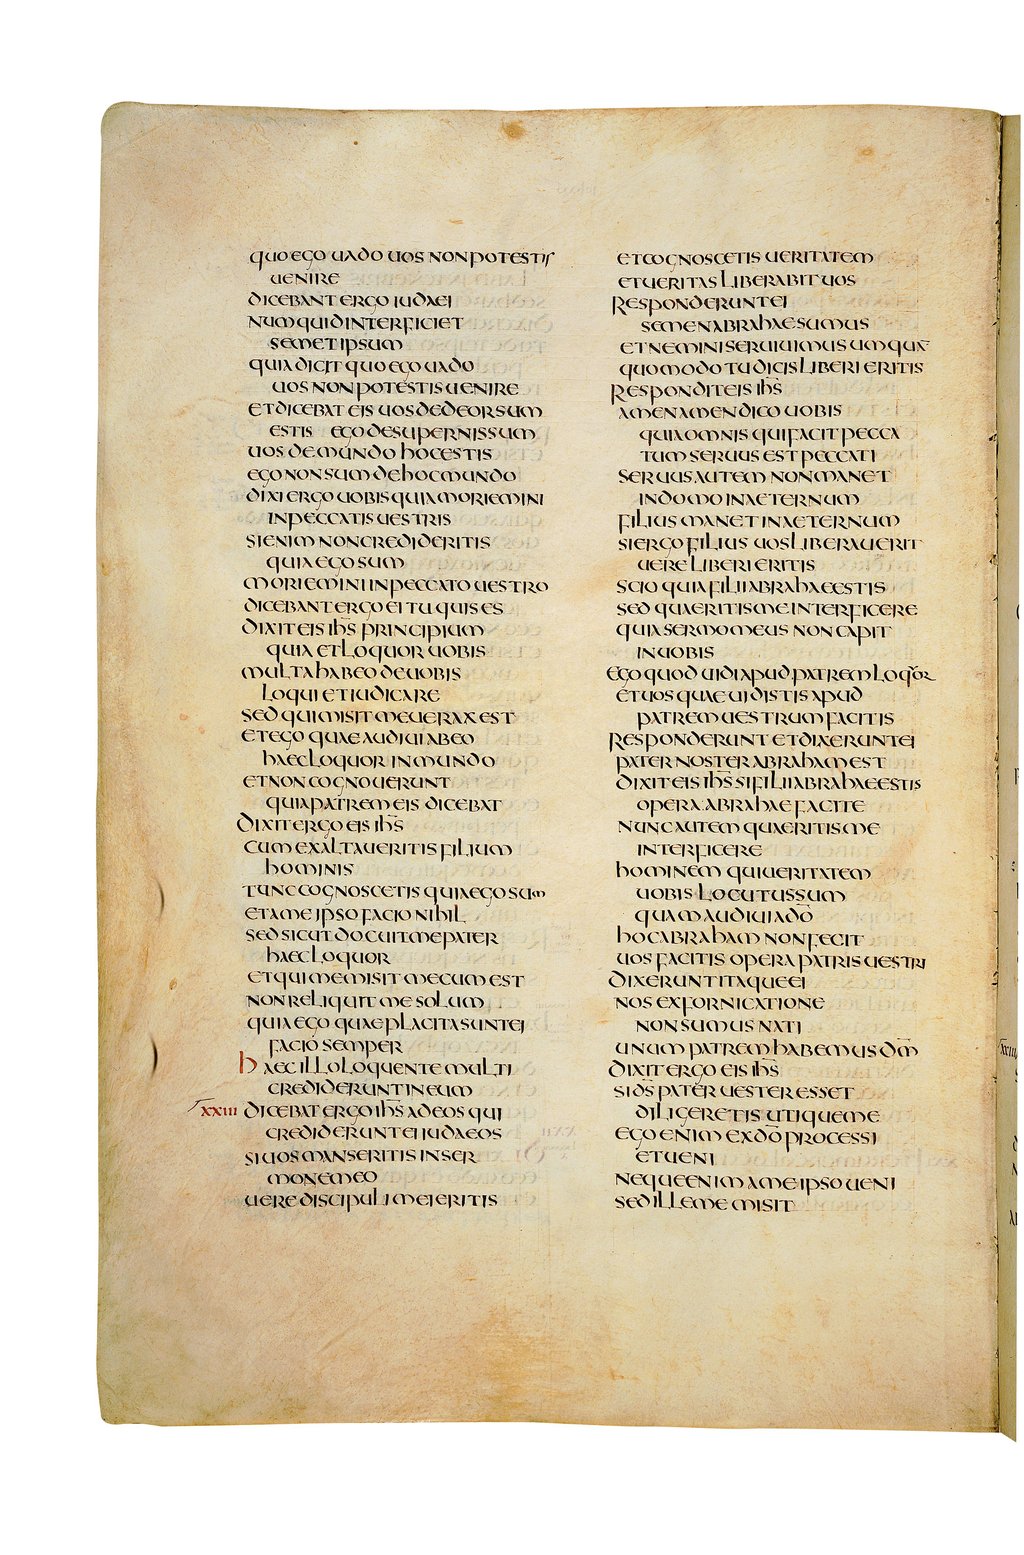 quo ego uado uos non potestis
uenire
dicebant ergo iudaei
numquid interficiet
semet ipsum
quia dicit quo ego uado
uos non potestis uenire
et dicebat eis uos de deorsum
estis ego de supernis sum
uos de mundo hoc estis
ego non sum de hoc mundo
dixi ergo uobis quia moriemini
in peccatis uestris
si enim non credideritis
quia ego sum
moriemini in peccato uestro
dicebant ergo ei tu quis es
dixit eis ihs̄ principium
quia et loquor uobis
multa habeo de uobis
loqui et iudicare
sed qui misit me uerax est
et ego quae audiui ab eo
haec loquor in mundo
et non cognouerunt
quia patrem eis dicebat
dixit ergo eis ihs̄
cum exaltaueritis filium
hominis
tunc cognoscetis quia ego sum
et a me ipso facio nihil
sed sicut docuit me pater
haec loquor
et qui me misit mecum est
non reliquit me solum
quia ego quae placita sunt ei
facio semper
haec illo loquente multi
crediderunt in eum
xxiii dicebat ergo ihs̄ ad eos qui
crediderunt ei iudaeos
si uos manseritis in ser
mone meo
uere discipuli mei eritis
et cognoscetis ueritatem
et ueritas liberabit uos
responderunt ei
semen abrahae sumus
et nemini seruiuimus umqua̅
quomodo tu dicis liberi eritis
respondit eis ihs̄
amen amen dico uobis
quia omnis qui facit pecca
tum seruus est peccati
seruus autem non manet
in domo in aeternum
filius manet in aeternum
si ergo filius uos liberauerit
uere liberi eritis
scio quia filii abrahae estis
sed quaeritis me interficere
quia sermo meus non capit
in uobis
ego quod uidi apud patrem loqor
et uos quae uidistis apud
patrem uestrum facitis
responderunt et dixerunt ei
pater noster abraham est
dixit eis ihs̄ si filii abrahae estis
opera abrahae facite
nunc autem quaeritis me
interficere
hominem qui ueritatem
uobis locutus sum
quam audiui a dō
hoc abraham non fecit
uos facitis opera patris uestri
dixerunt itaque ei
nos ex fornicatione
non sumus nati
unum patrem habemus dm̄
dixit ergo eis ihs̄
si ds̄ pater uester esset
diligeretis utique me
ego enim ex dō processi
et ueni
neque enim a me ipso ueni
sed ille me misit